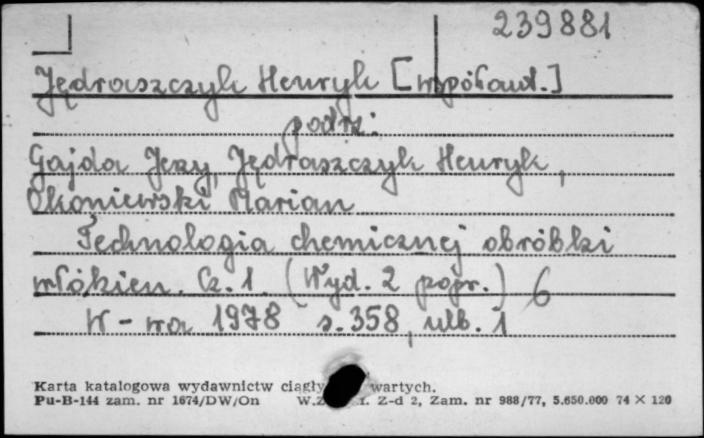 239881
Jędraszczyk Henryk [współaut.]
podrz:
Gajda Jerzy, Jędraszczyk Henryk,
Okoniewski Marian
Technologia chemicznej obróbki
włókien. Cz. 1. (Wyd. 2 popr.) 6
W-wa 1978 s. 358, nlb. 1
Karta katalogowa wydawnictw ciągły wartych.
Pu-B-144 zam. nr 1674/DW/On W.Z Z-d 2, Zam. nr 988/77, 5.650.000 74 × 120